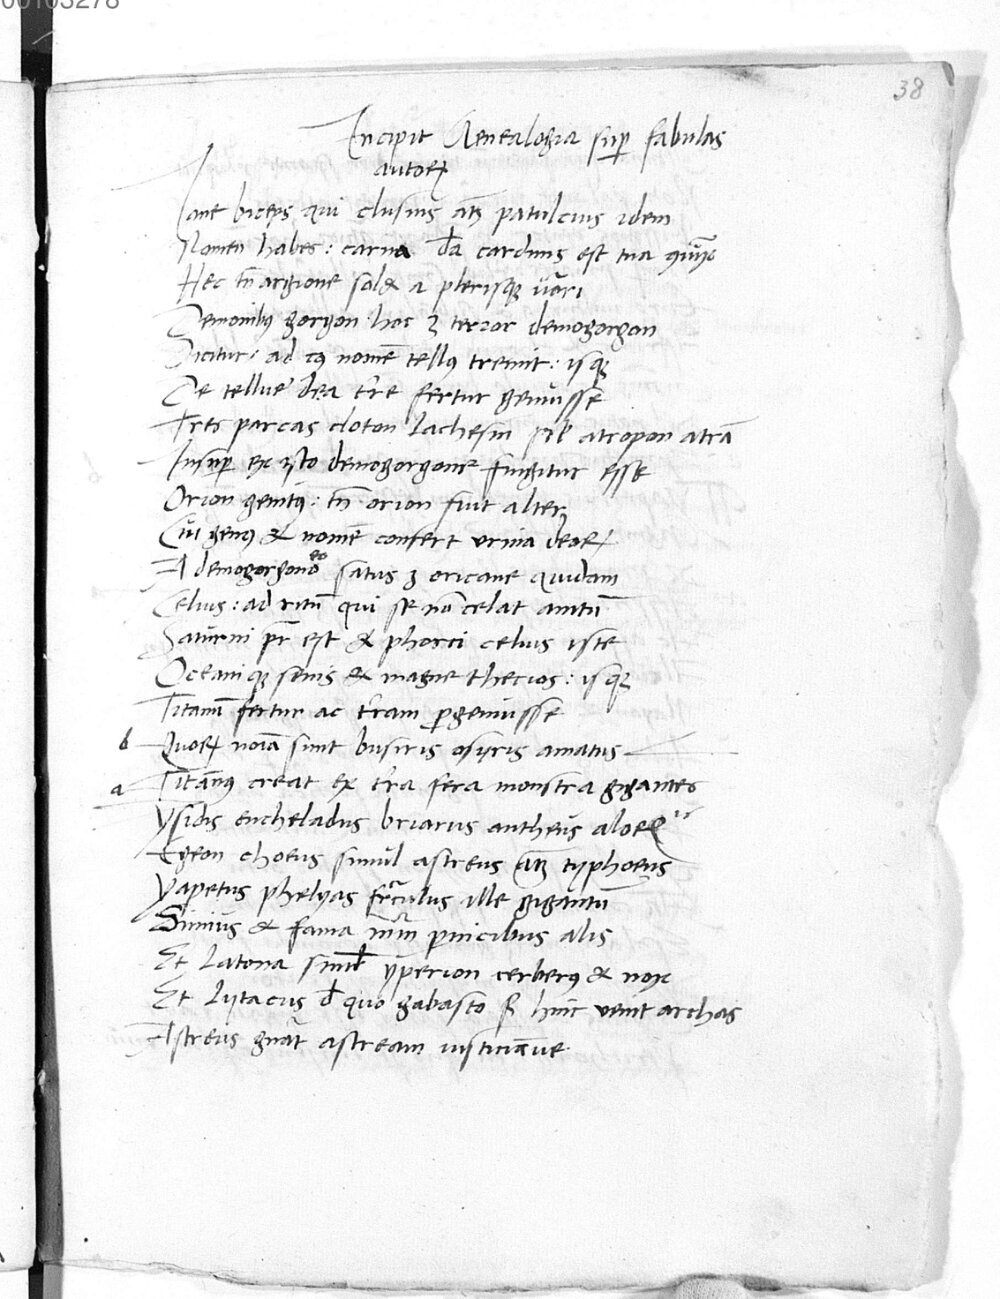 00103278
38
Incipit Genealogia sup̲ fabulas
autoꝝ
Iane biceps qui clusius atq̃ patulcius idem
Nomen habes: carna d̄a cardinis est tua
Hec tñ argione solꝫ a plerisqꝫ
Demonibꝰ gorgon hoc ꝫ terror demogorgon
Dicitur: ad cꝰ nomē tellꝰ tremit: isqꝫ
De tellure dea terre fertur genuisse
Tres parcas cloton lachesin atropon atrā
Insup̲ ex isto demogorgone fingitur esse
Orion genitꝰ: tñ orion fuit alter
Cui genꝰ & nomē confert urina deoꝝ
A demogorgone satus ꝫ oricane quidam
eo
Celius: ad ritū qui se nō celat amictū
Saturni pr̄ est & phorci celius iste
Oceanique senis & magne thetios: isqꝫ
Titanū fertur ac terram pergenuisse
b Quoꝝ noīa sunt busiris osyris amatus
a Titanꝰ creat ex terra fera monstra gigantes
Ysidis encheladus briarus antheus aloeꝝ
Egeon choeus simul astreus atqꝫ typhoeus
Yapetus phelyas ille gigantū
Simius & fama pernicibus alis
Et latona simul yperion cerberꝰ & nox
Et lytacus d̄ quo gabasto hinc venit archas
Astreus gn̄at astream iusticiamue